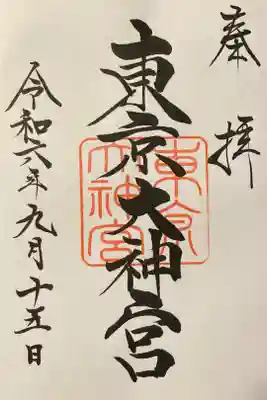 奉拝
東京大神宮
東京大神宮
令和六年九月十五日